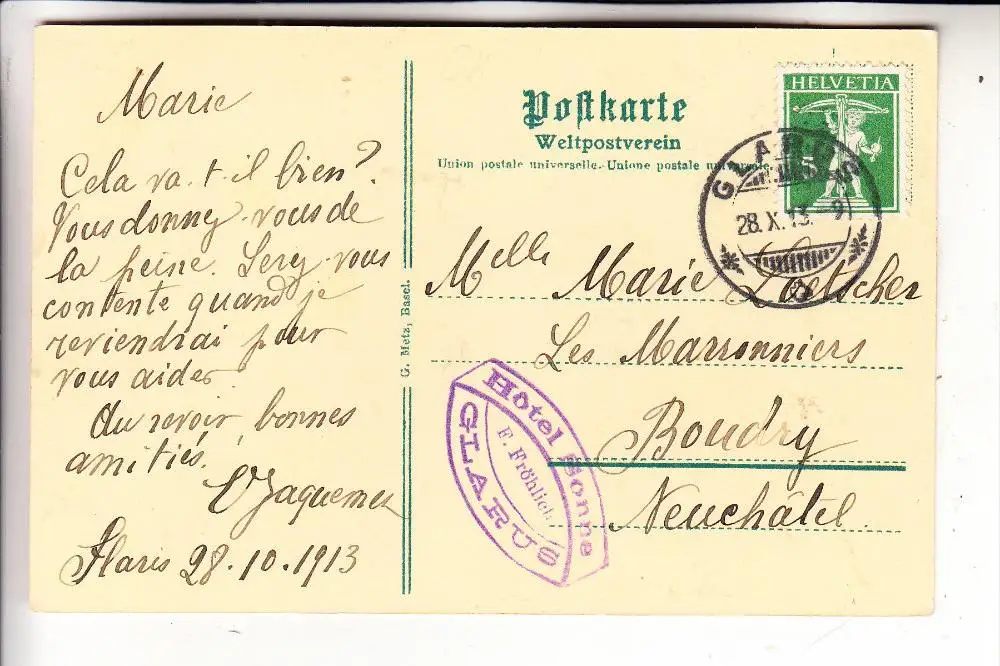 Marie
Cela va-t-il bien?
Vous donnez-vous de
la peine. Serez-vous
contente quand je
reviendrai pour
vous aider.
Au revoir, bonnes
amitiés.
Glaris 28.10.1913
G. Metz, Basel.
Postkarte
Weltpostverein
Union postale universelle. Unione postale
HELVETIA
5
GLARUS
28.X.13.-9
Melle Marie Loetscher
Les Marronniers
Boudry
Neuchâtel.
Hôtel Sonne
F. Fröhlich.
GLARUS